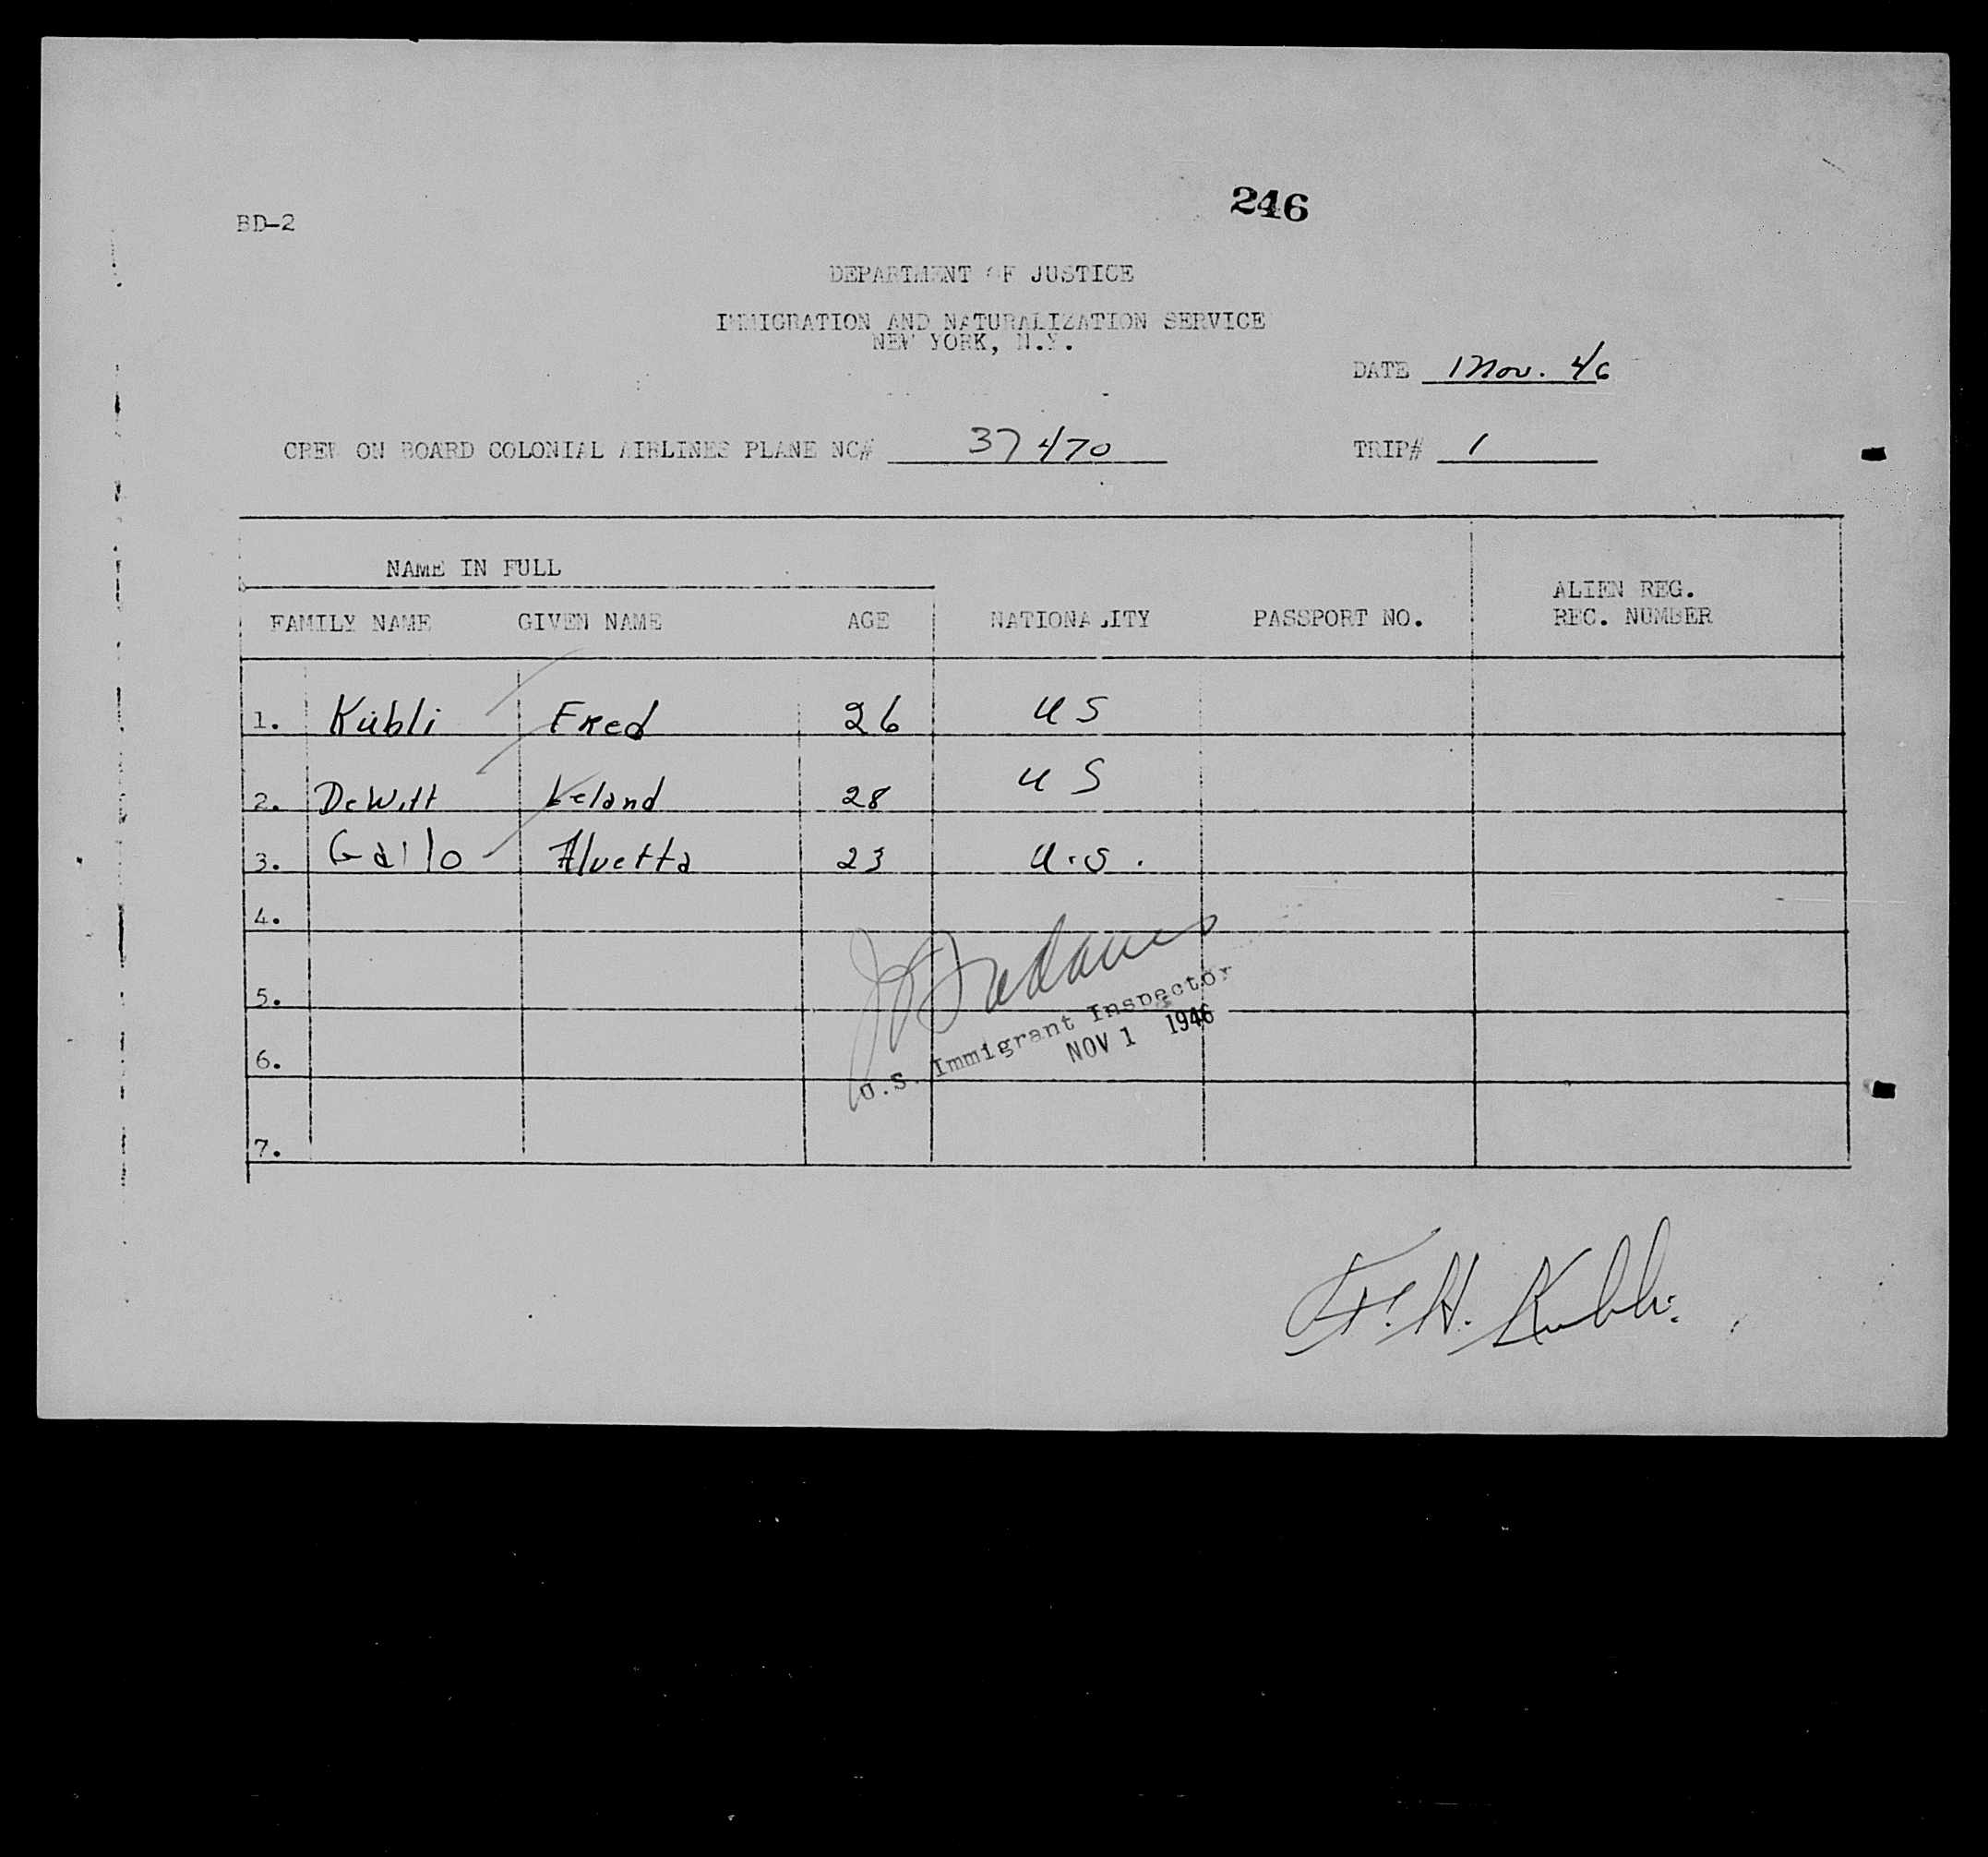 246
BD-2
DEPARTMENT OF JUSTICE
IMMIGRATION AND NATURALIZATION SERVICE
NEW YORK, N.Y.
DATE 1 Nov. 46
CREW ON BOARD COLONIAL AIRLINES PLANE NC# 37470 TRIP# 1
NAME IN FULL
FAMILY NAME GIVEN NAME AGE NATIONALITY PASSPORT NO. ALIEN REG. REC. NUMBER
1. Kubli Fred 26 US
2. DeWitt Leland 28 US
3. Gallo Alvetta 23 U.S.
4.
5.
6.
7.
U.S. Immigrant Inspector
NOV 1 1946
F. H. Kubli